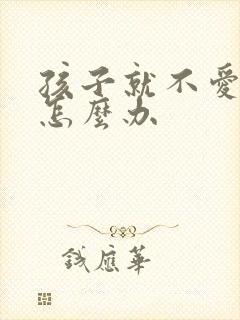 孩子就不愛
怎麼办
钱應華